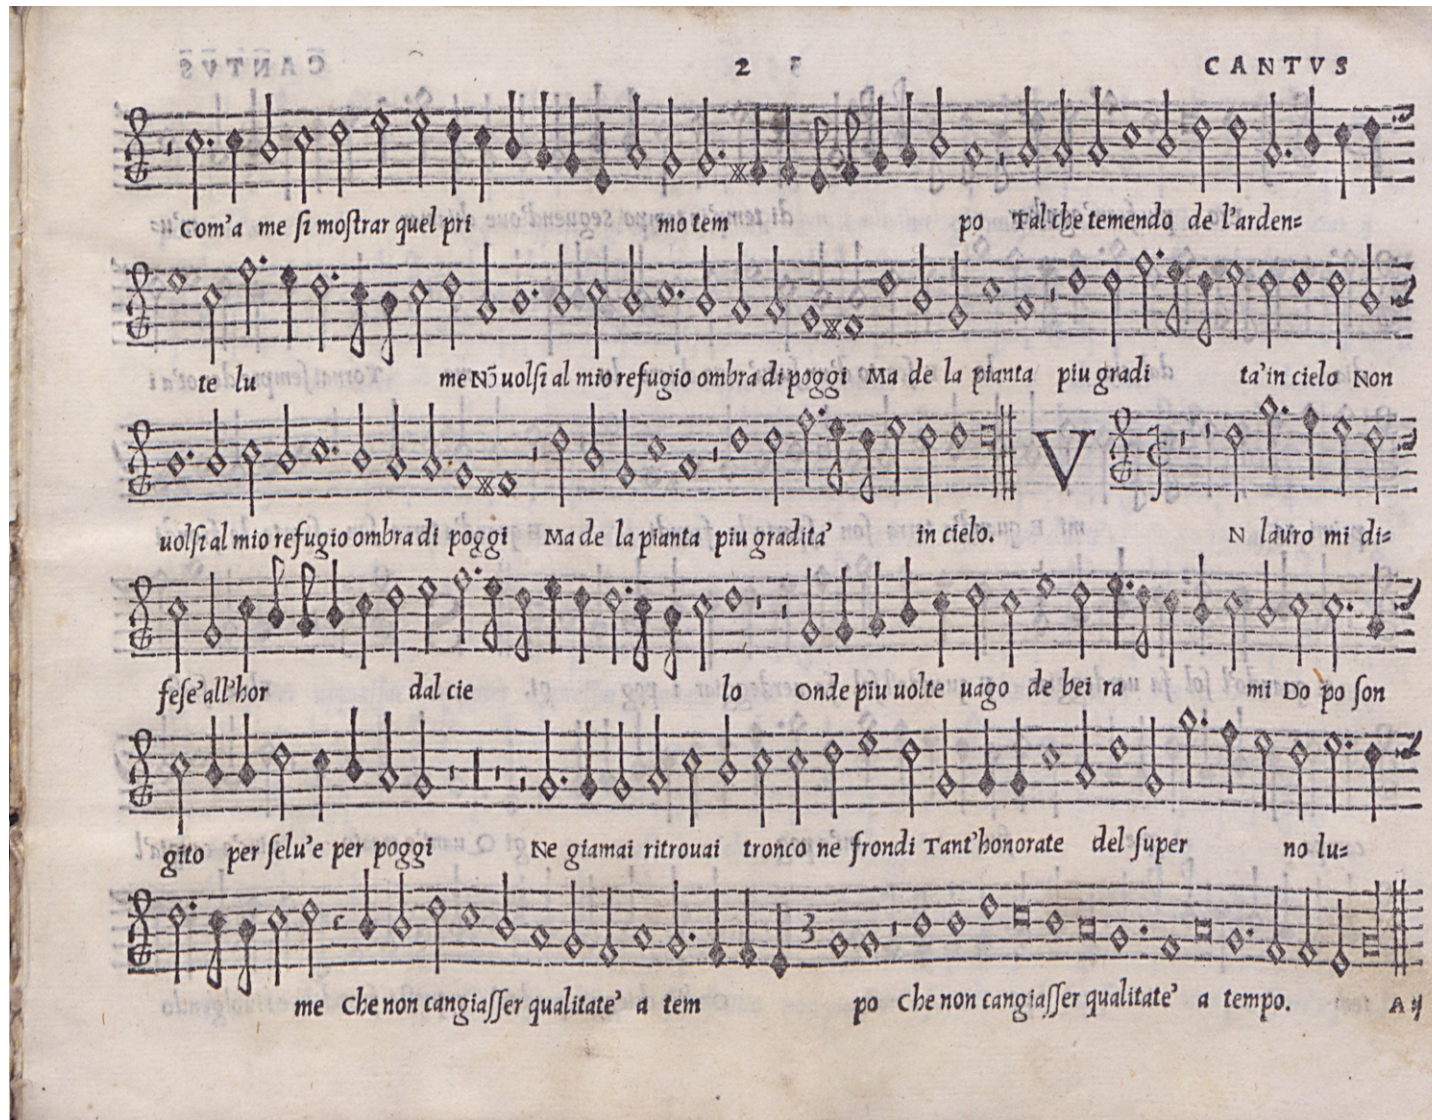 2 CANTVS
Com'a me ſi moſtrar quel pri mo tem po Tal che temendo de l'arden=
te lu me Nō uolſi al mio refugio ombra di poggi Ma de la pianta piu gradi ta'in cielo Non
uolſi al mio refugio ombra di poggi Ma de la pianta piu gradita' in cielo. V N lauro mi di=
feſe'all'hor dal cie lo Onde piu uolte uago de bei ra mi Do po ſon
gito per ſelu'e per poggi Ne giamai ritrouai tronco ne frondi Tant'honorate del ſuper no lu=
3
me Che non cangiaſſer qualitate' a tem po Che non cangiaſſer qualitate' a tempo. A ij